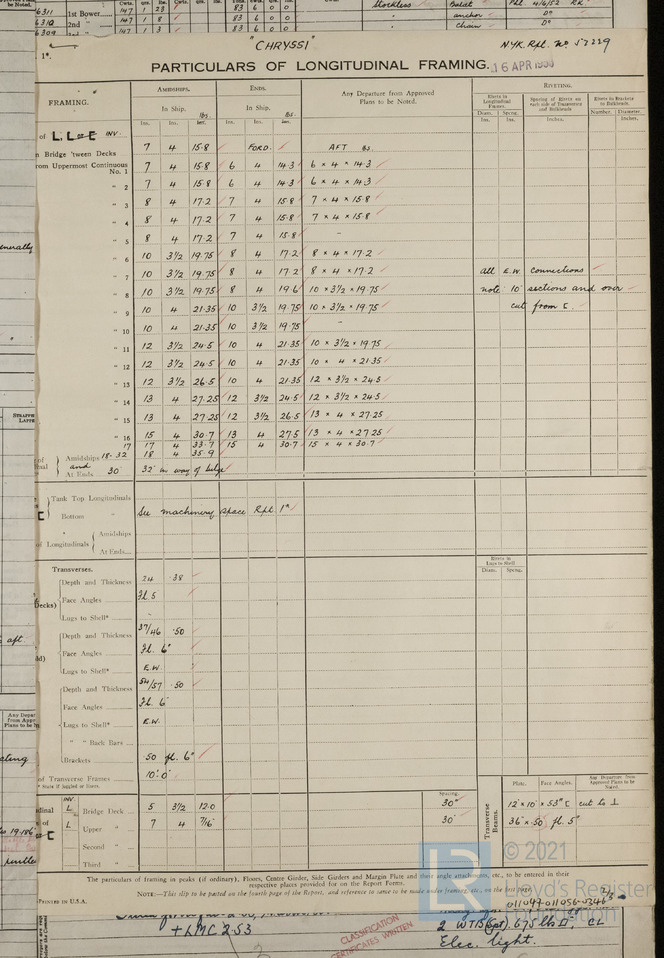 6311 1st Bower 147 1 23 83 6 0 0 Stockless Balat Pel. 4/6/52 RR
6310 2nd " 147 1 8 83 6 0 0 " anchor Do
6309 147 1 3 83 6 0 0 " chain Do
"CHRYSSI" NYK. Rpt. No 57229
1*.
PARTICULARS OF LONGITUDINAL FRAMING. 16 APR 1953
FRAMING. AMIDSHIPS. ENDS. Any Departure from Approved Plans to be Noted. RIVETING.
In Ship. In Ship. Rivets in Longitudinal Frames. Spacing of Rivets on each side of Transverses and Bulkheads. Rivets in Brackets to Bulkheads.
Ins. Ins. lbs. Ins. Ins. lbs. Diam. Spcng. Number. Diameter.
Ins. Ins. Inches. Inches.
of L. L or E INV. 7 4 15.8 FORD. AFT lbs.
n Bridge 'tween Decks
rom Uppermost Continuous
No. 1 7 4 15.8 6 4 14.3 6 × 4 × 14.3
" 2 7 4 15.8 6 4 14.3 6 × 4 × 14.3
" 3 8 4 17.2 7 4 15.8 7 × 4 × 15.8
" 4 8 4 17.2 7 4 15.8 7 × 4 × 15.8
" 5 8 4 17.2 7 4 15.8 –
" 6 10 3½ 19.75 8 4 17.2 8 × 4 × 17.2
" 7 10 3½ 19.75 8 4 17.2 8 × 4 × 17.2 all E.W. connections
" 8 10 3½ 19.75 8 4 19.6 10 × 3½ × 19.75 note 10" sections and over
" 9 10 4 21.35 10 3½ 19.75 10 × 3½ × 19.75 cut from [.
" 10 10 4 21.35 10 3½ 19.75 –
" 11 12 3½ 24.5 10 4 21.35 10 × 3½ × 19.75
" 12 12 3½ 24.5 10 4 21.35 10 × 4 × 21.35
" 13 12 3½ 26.5 10 4 21.35 12 × 3½ × 24.5
" 14 13 4 27.25 12 3½ 24.5 12 × 3½ × 24.5
" 15 13 4 27.25 12 3½ 26.5 13 × 4 × 27.25
" 16 15 4 30.7 13 4 27.5 13 × 4 × 27.25
17 17 4 33.7 15 4 30.7 15 × 4 × 30.7
Amidships 18-32 18 4 35.9
and
At Ends 30" 32" in way of bilge
Tank Top Longitudinals
Bottom " See machinery space Rpt 1*
" Amidships
of Longitudinals At Ends
Transverses. Rivets in Lugs to Shell
Diam. Spcng.
Depth and Thickness 24 .38
Decks) Face Angles Fl. 5
Lugs to Shell* –
Depth and Thickness 37/46 .50
Face Angles Fl. 6"
Lugs to Shell* E.W.
Depth and Thickness 54/57 .50
Face Angles Fl. 6
Lugs to Shell* E.W.
" " Back Bars
Brackets 50 fl. 6"
of Transverse Frames 10'.0"
* State if joggled or liners.
Spacing. Plate. Face Angles. Any Departure from Approved Plans to be Noted.
INV.
dinal L Bridge Deck 5 3½ 12.0 30" Transverse Beams. 12" × 10" × 53# [ cut to ⊥
s of L Upper " 7 4 7/16 30" 36 × 50 fl. 5"
Second "
Third "
The particulars of framing in peaks (if ordinary), Floors, Centre Girder, Side Girders and Margin Plate and their angle attachments, etc., to be entered in their
respective places provided for on the Report Forms.
NOTE:—This slip to be pasted on the fourth page of the Report, and reference to same to be made under framing, etc., on the first page.
PRINTED IN U.S.A.
© 2021
Lloyd's Register
Foundation
011047-011056-0346
2/3
+ LMC 2.53
CLASSIFICATION
CERTIFICATES WRITTEN
2 WTB (Spt) 675 lbs CL
Elec. light.